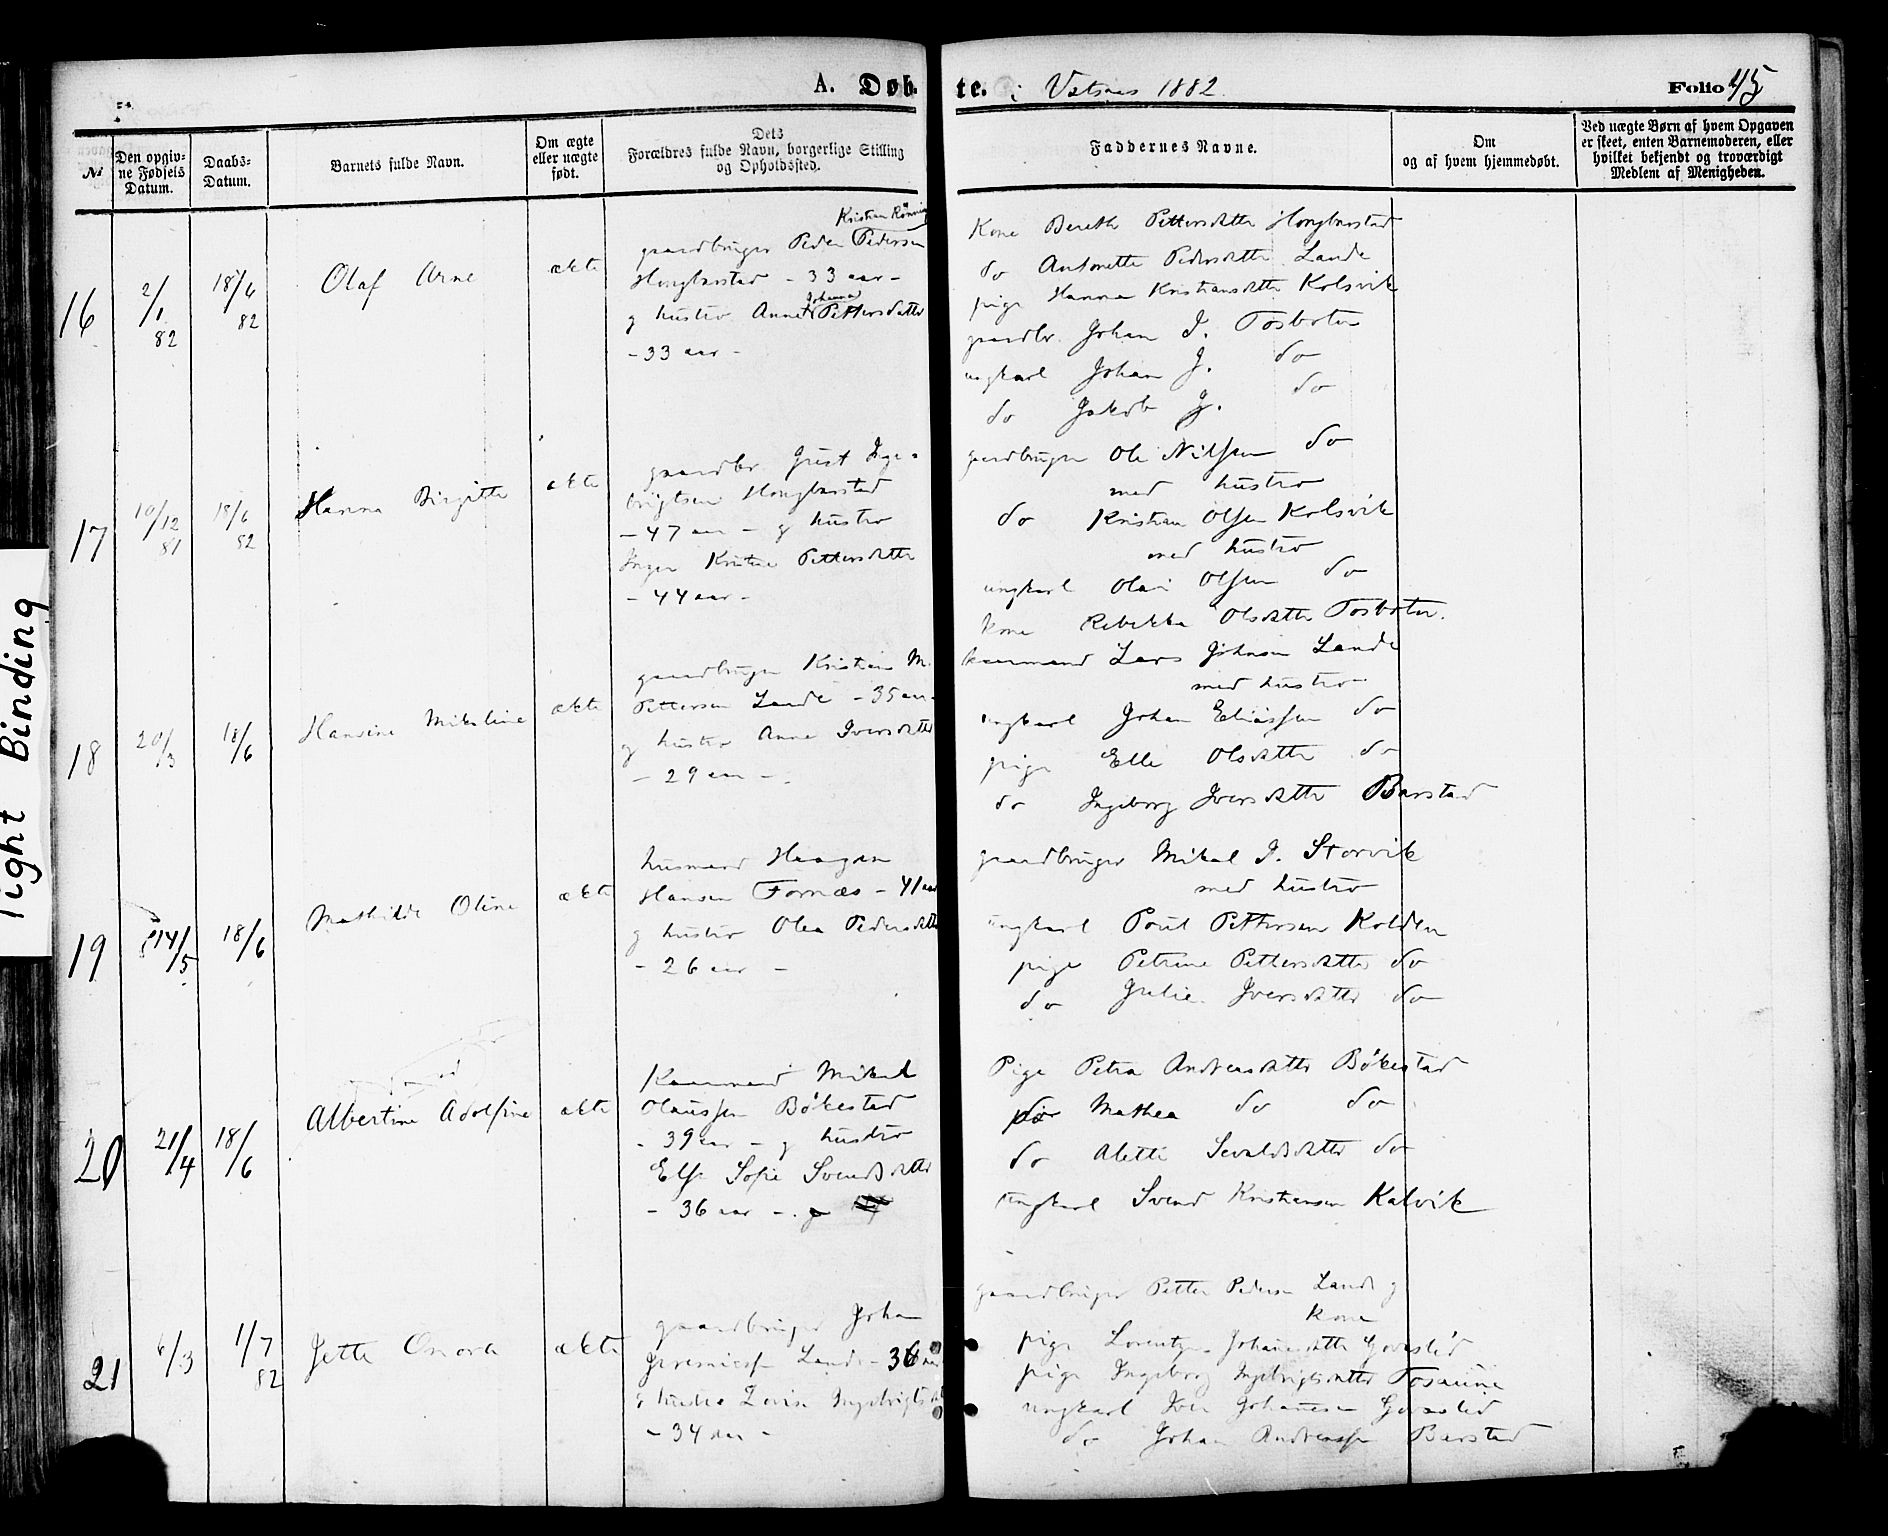 A. Døb-
te. i Vatsnes 1882.
Folio 45
№
Den opgiv-
ne Fødsels
Datum.
Daabs-
Datum.
Barnets fulde Navn.
Om ægte
eller uægte
født.
Dets
Forældres fulde Navn, borgerlige Stilling
og Opholdssted.
Faddernes Navne.
Om
og af hvem hjemmedøbt.
Ved uægte Børn af hvem Opgaven
er skeet, enten Barnemoderen, eller
hvilket bekjendt og troværdigt
Medlem af Menigheden.
16
2/1 82
18/6 82
Olaf Arne
ækte
Kristian
gaardbruger Peder Pedersen
- 33 aar -
g hustro Anne Johanna Pettersdatter
- 33 aar -
Kone Bereth Pettersdatter
do Antonette Pedersdatter Lande
pige Hanna Kristiansdatter Kolsvik
gaardbr. Johan J. Tosboten
ungkarl Johan J. do
do Jakob J. do
17
10/12 81
18/6 82
Hanna Birgitte
ækte
gaardbr Just Inge-
brigtsen
- 47 aar - g hustro
Inger Kristine Pettersdatter
- 44 aar -
gaardbruger Ole Nilssen do
med hustro
do Kristian Olsen Kolsvik
med hustro
ungkarl Olai Olsen do
kone Rebekka Olsdatter Tosboten.
18
20/3
18/6
Hansine Mikaline
ækte
gaardbruger Kristian M.
Pettersen Lande - 35 aar -
g hustro Anne Iversdatter
- 29 aar -
Lars Johnsen Lande
med hustro
ungkarl Johan Eliassen do
pige Elli Olsdatter do
do Ingeborg Iversdatter Barstad
19
14/5
18/6
Mathilde Oline
ækte
husmand Haagen
Hansen Fornæs - 41 aar
g hustro Olea Pedersdatter
- 26 aar -
gaardbruger Mikal J. Storvik
med hustro
ungkarl Poul Pettersen Kolden
pige Petrine Pettersdatter do
do Julie Iversdatter do
20
21/4
18/6
Albertine Adolfine
ækte
Mikal
Olaussen Bökestad
- 39 aar - g hustro
Else Sofie Svendsdatter
- 36 aar -
Pige Petra Andreasdatter Bökestad
do Mathea do do
do Aletti Sevaldsdatter do
ungkarl Svend Kristiansen Kalvik
21
6/3
1/7 82
Jette
ækte
gaardbruger Johan
Lande - 36 aar
g hustro Lovise
- 34 aar -
gaardbruger Petter Pedersen Lande g
kone
pige Johansdatter
pige Ingeborg Ingebrigtsdatter
ungkarl Iver Johansen
do Johan Andreassen Barstad
Tight Binding